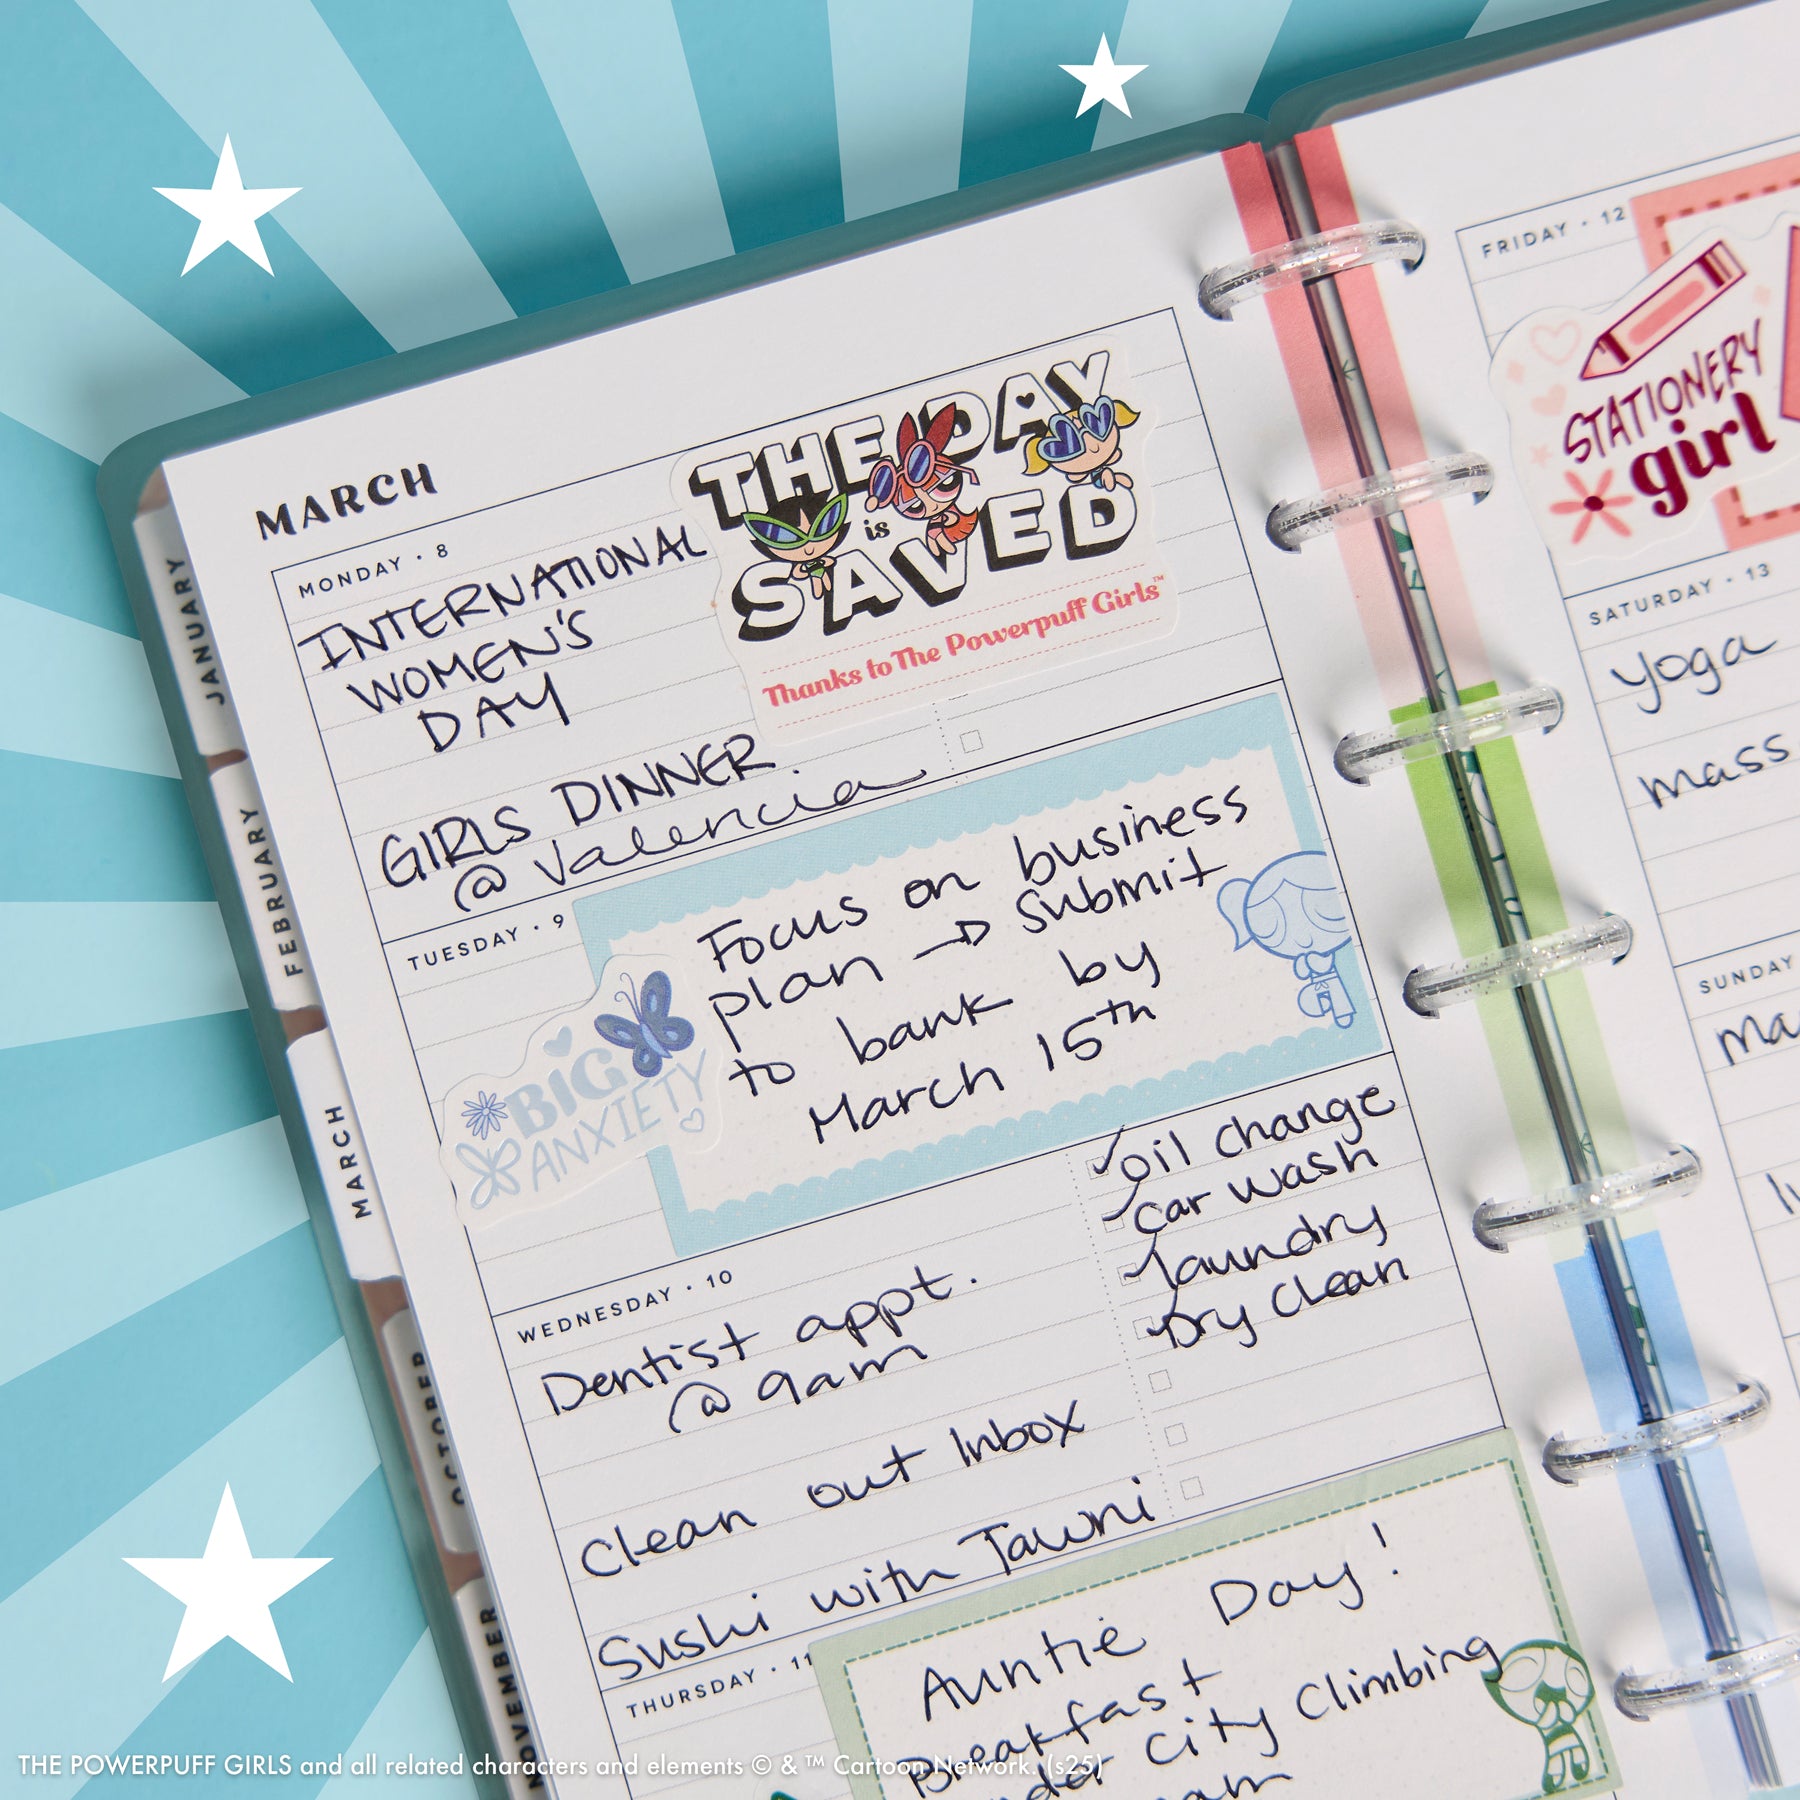 MARCH
MONDAY · 8
INTERNATIONAL
WOMEN'S
DAY
GIRLS DINNER
@ Valencia
THE DAY
is
SAVED
Thanks to The Powerpuff Girls™
TUESDAY · 9
Focus on business
plan → Submit
to bank by
March 15th
BIG
ANXIETY
WEDNESDAY · 10
Dentist appt.
@ 9am
Clean out Inbox
Sushi with Tawni
oil change
car wash
laundry
Dry Clean
THURSDAY · 11
Auntie Day!
Breakfast
City Climbing
FRIDAY · 12
STATIONERY
girl
SATURDAY · 13
yoga
mass
SUNDAY
JANUARY
FEBRUARY
MARCH
OCTOBER
NOVEMBER
THE POWERPUFF GIRLS and all related characters and elements © & ™ Cartoon Network. (s25)